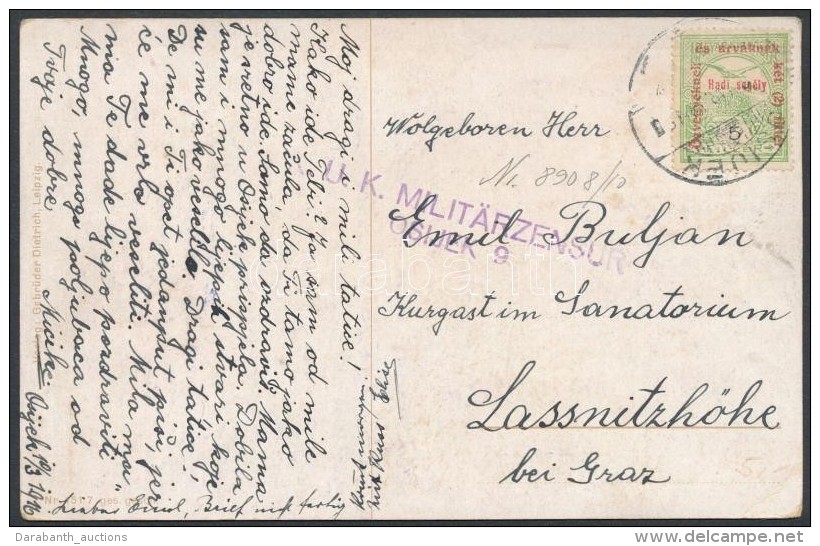 Moj dragi i mili tatice!
Kako ide Tebi? Ja sam od mile
mame začula, da Ti tamo jako
dobro ide. Samo da ozdraviš. Mama
je sretno u Osijek prispjela. Dobila
sam i mnogo lijepih stvari koje
su me jako veselile. Dragi tatice!
De mi i Ti opet jedanput piši, jer
će me vrlo veseliti. Mila ma-
ma Te dade lijepo pozdraviti.
Mnogo, mnogo poljubaca od
Tvoje dobre
Osijek 10/3 1916
Lieber Emil, Brief nicht fertig
Gebrüder Dietrich, Leipzig.
Wolgeboren Herr
Nr. 8908/10
Emil Buljan
Kurgast im Sanatorium
Lassnitzhöhe
bei Graz
U. K. MILITÄRZENSUR
OSIJEK 9
özvegyeknek és árváknak két (2) fillér
Hadi segély
5
darabanth
Darabanth_auctions
delcampe.net